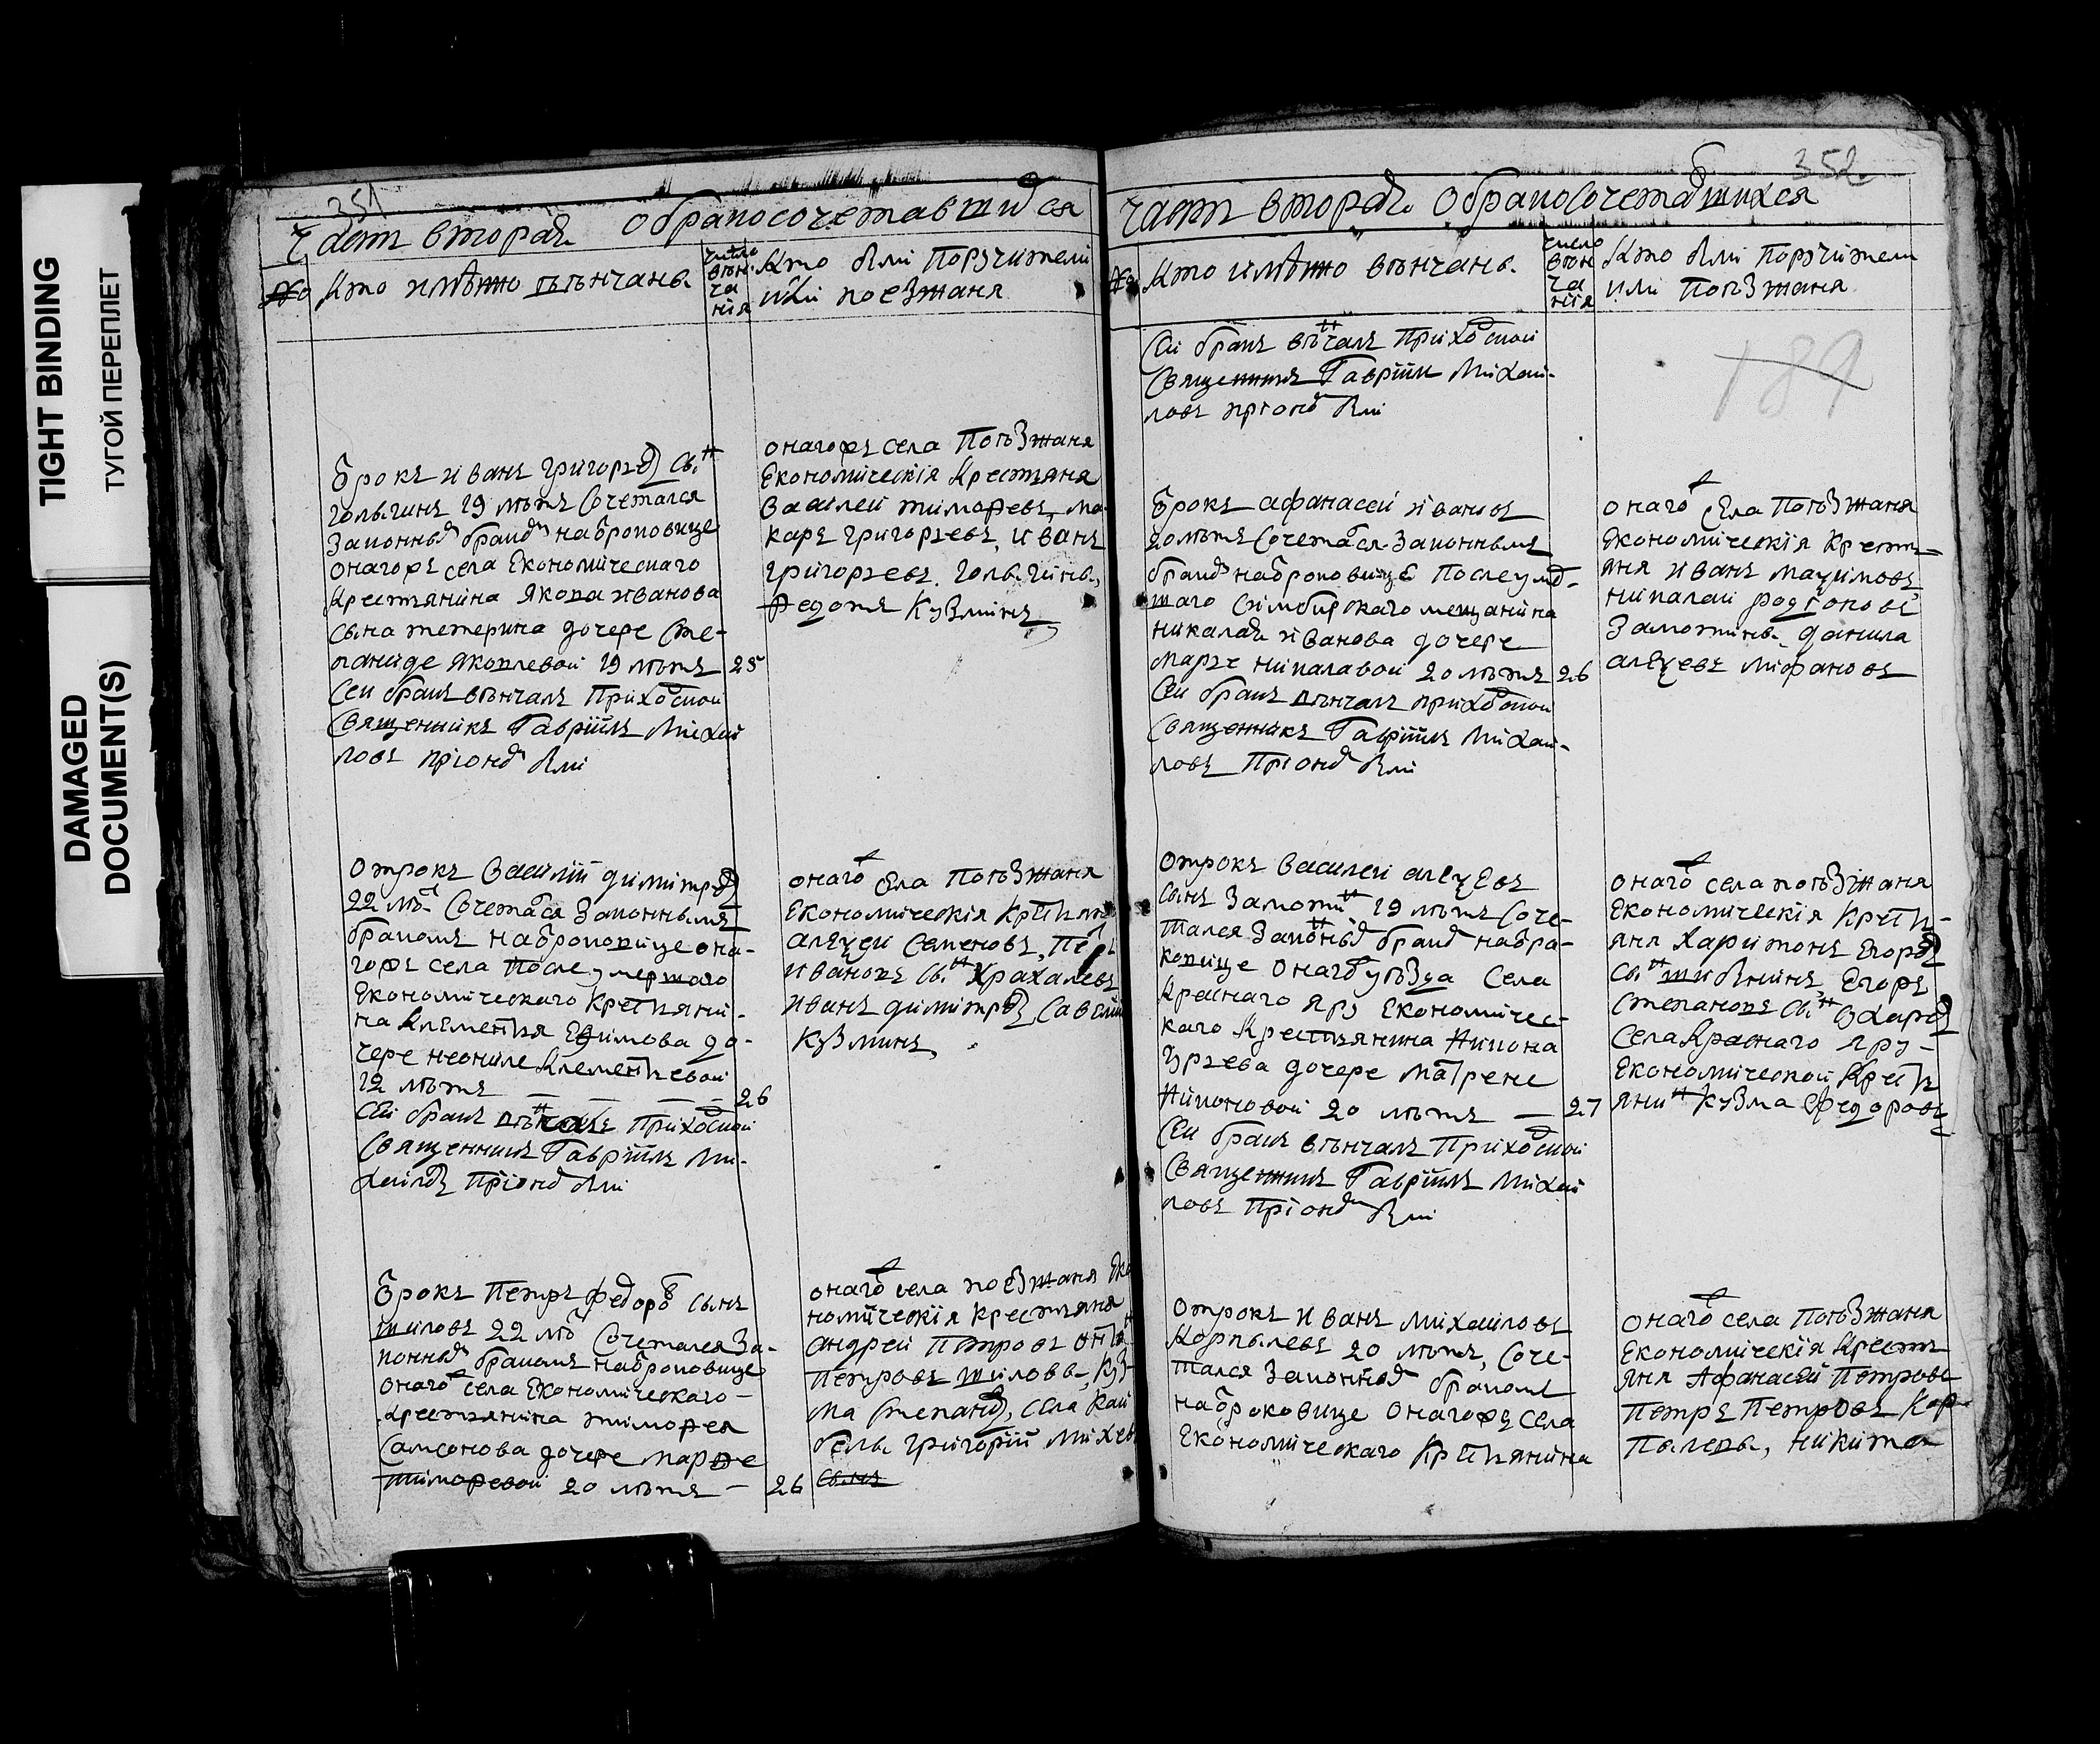 TIGHT BINDING
ТУГОЙ ПЕРЕПЛЕТ
DAMAGED
DOCUMENT(S)
351
часть вторая о бракосочетавшихся
№ Кто имѣнно вѣнчаны.
число вѣнчания
Кто были Поручители
или поезжаня
Ѿрокъ иванъ григорьевъ сынъ
голыгинъ 19 лѣтъ Сочетался
Законнымъ бракомъ наѿроковице
онагожъ села Економическаго
крестьянина Якова иванова
сына тетерина дочере сте-
паниде яковлевой 19 лѣтъ 25
Сеи бракъ вѣнчалъ Приходской
Священникъ Гавріилъ Михай
ловъ при ономъ были
онагожъ села Поѣзжаня
Економическія Крестьяня
Василей тимофеевъ, ма
каръ григорьевъ, иванъ
григорьевъ. голыгины,
Федотъ Кузминъ
отрокъ Василій димитревъ
22 лѣ Сочетася Законнымъ
бракомъ наѿроковице она-
гожъ села После умершаго
Економическаго Крестьяни-
на Клементья Ефимова до-
чере неониле Клементьевой
19 лѣтъ 26
Сей бракъ вѣнчалъ Приходской
Священникъ Гавріилъ Ми-
хаиловъ При ономъ были
онаго села Поѣзжаня
Економическія Крестьян
алеѯеи Семеновъ, Петръ
ивановъ сынъ Храхалевъ
иванъ димитревъ, Савелий
Кузминъ,
Ѿрокъ Петръ федоровъ сынъ
шиловъ 22 лѣ Сочетался За-
коннымъ бракомъ наѿроковице
онаго села Економическаго
крестьянина тимофея
Самсонова дочере марфе
тимофеевой 20 лѣтъ — 26
онаго села поезжаня Еко
номическія крестьяня
андреи Петровъ
Петровъ шиловы, куз
ма степановъ, села Кай
белы григорій михеевъ
сынъ
352
часть вторая о бракосочетавшихся
№ Кто имѣнно вѣнчаны.
число вѣнчания
Кто были Поручители
или Поѣзжаня
189
Сеи бракъ вѣнчалъ Приходской
Священникъ Гавріилъ Михай-
ловъ при ономъ были
Ѿрокъ афанасей ивановъ
20 лѣтъ Сочетася Законнымъ
бракомъ наѿроковице После умер-
шаго Симбирскаго мещанина
николая иванова дочере
марье николавой 20 лѣтъ 26
Сеи бракъ вѣнчалъ приходской
Священникъ Гавріилъ Михай-
ловъ При ономъ были
онаго села Поѣзжаня
Економическія Кресть-
яня иванъ маѯимовъ
николай родионовъ
Замотины. данила
алеѯеевъ
отрокъ Василей алеѯеевъ
сынъ Замотинъ 19 лѣтъ Соче-
тался Законнымъ бракомъ наѿро-
ковице онаго уѣзда Села
Краснаго яру Економичес-
каго Крестьянина никона
Юрьева дочере матрене
никоновой 20 лѣтъ — 27
Сеи бракъ вѣнчалъ Приходской
Священникъ Гавріилъ Михай
ловъ При ономъ были
онаго села поѣзжаня
Економическія Кресть-
яня Харитонъ Егоровъ
сынъ шибенинъ, Егоръ
Степановъ сынъ
Села Краснаго яру
Економической Кресть
янинъ Кузма федоровъ
отрокъ иванъ михаиловъ
Корпылевъ 20 лѣтъ, Соче-
тался Законнымъ бракомъ
наѿроковице онагожъ села
Економическаго Крестьянина
онаго села Поѣзжаня
Економическія Кресть
яня Афанасей Петровъ
Петръ Петровъ Кор-
пылевы, никита